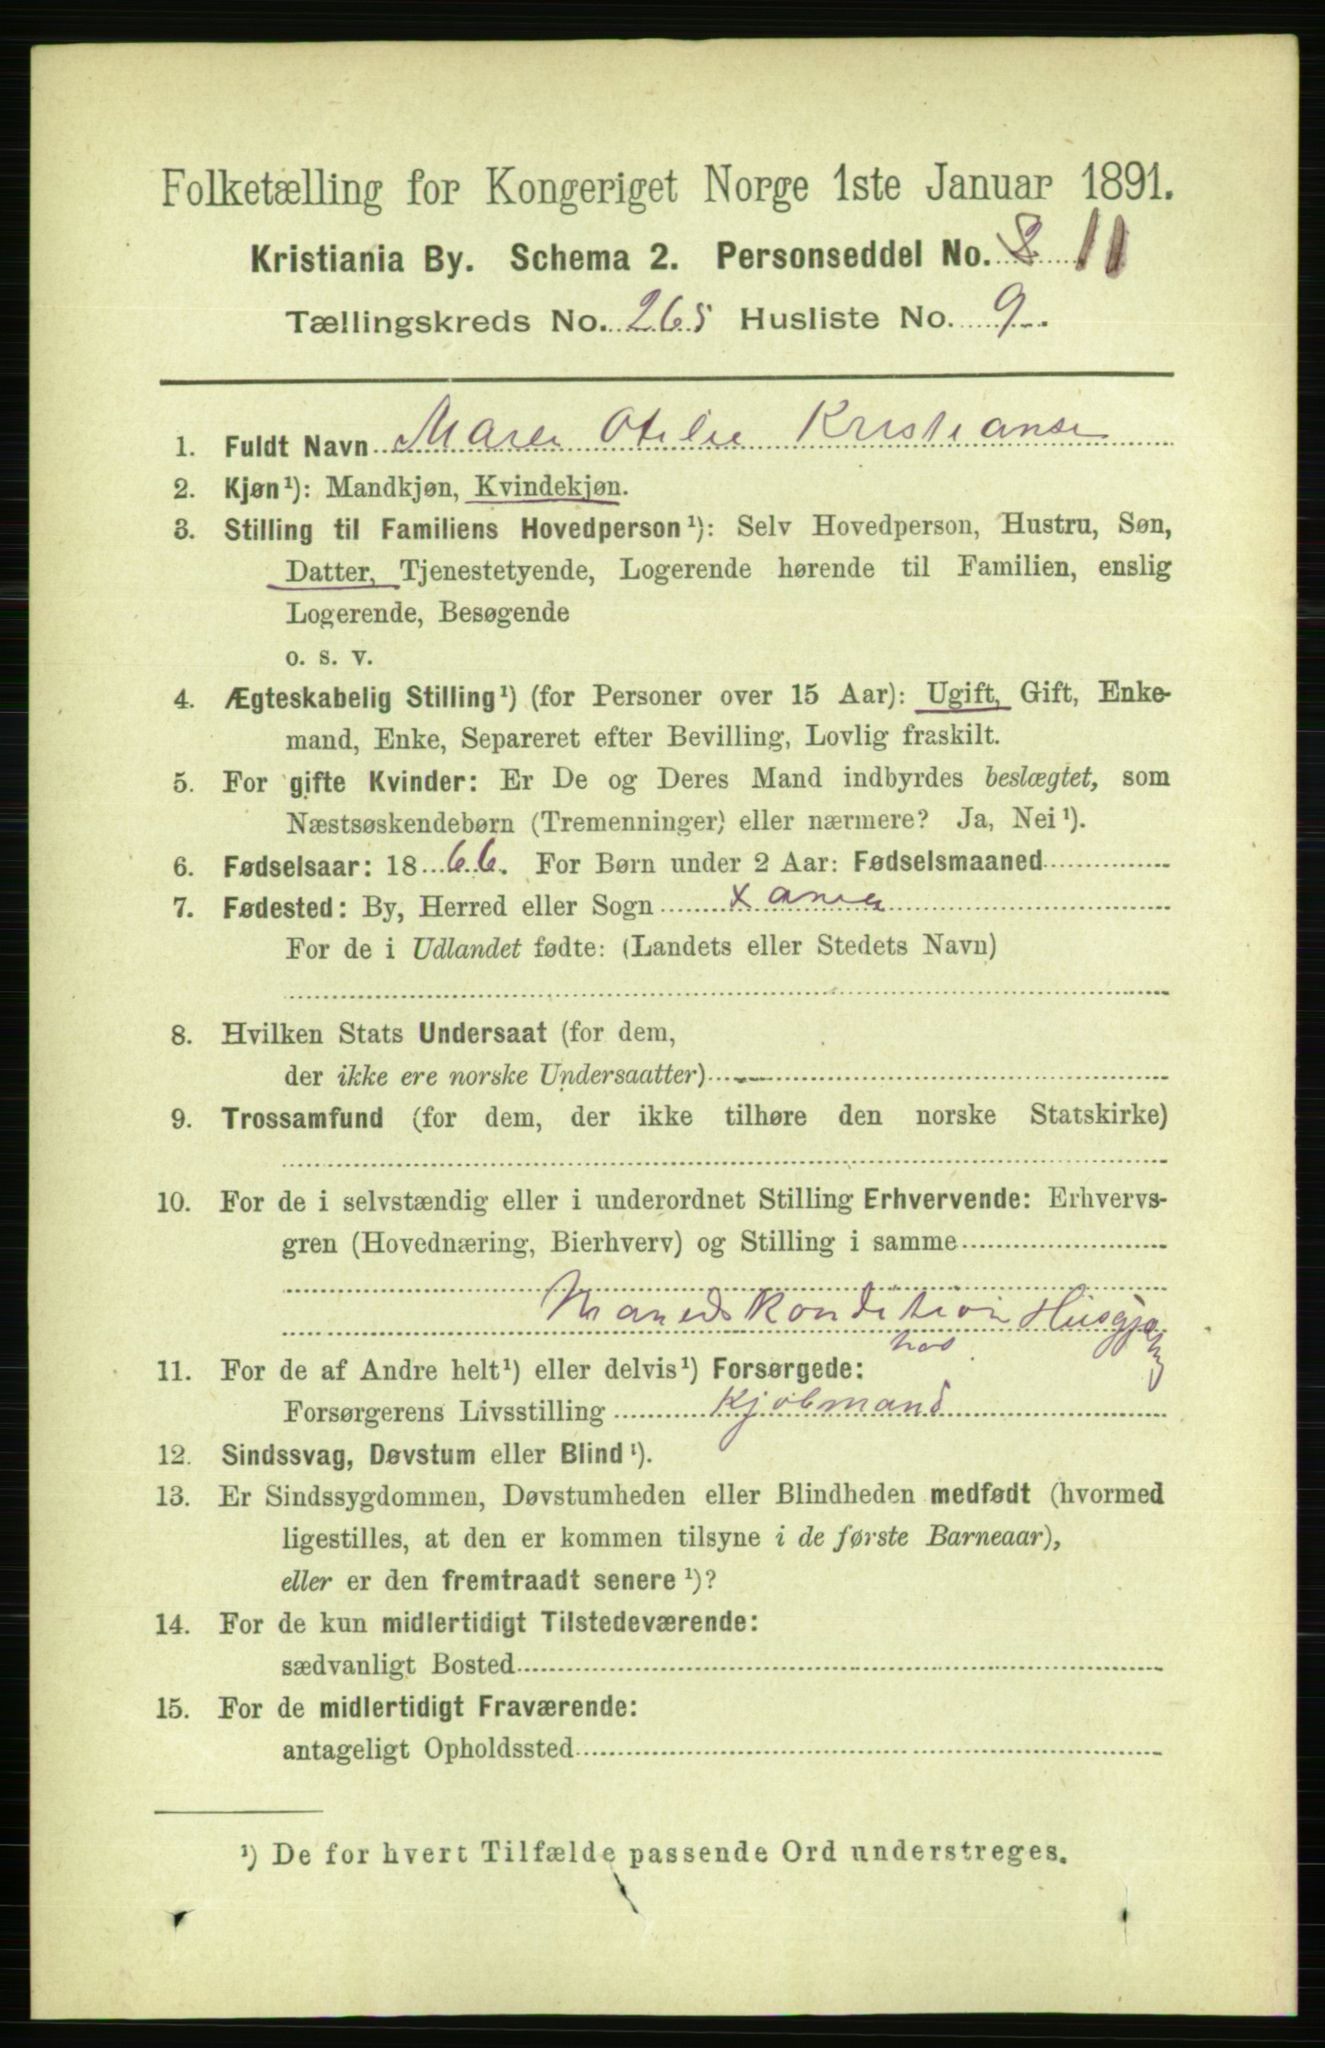 Folketælling for Kongeriget Norge 1ste Januar 1891.
Kristiania By. Schema 2. Personseddel No. 8 11
Tællingskreds No. 265 Husliste No. 9
1. Fuldt Navn Maren Otilie Kristianse
2. Kjøn¹): Mandkjøn, Kvindekjøn.
3. Stilling til Familiens Hovedperson¹): Selv Hovedperson, Hustru, Søn,
Datter, Tjenestetyende, Logerende hørende til Familien, enslig
Logerende, Besøgende
o. s. v.
4. Ægteskabelig Stilling¹) (for Personer over 15 Aar): Ugift, Gift, Enke-
mand, Enke, Separeret efter Bevilling, Lovlig fraskilt.
5. For gifte Kvinder: Er De og Deres Mand indbyrdes beslægtet, som
Næstsøskendebørn (Tremenninger) eller nærmere? Ja, Nei¹).
6. Fødselsaar: 1866. For Børn under 2 Aar: Fødselsmaaned
7. Fødested: By, Herred eller Sogn Xania
For de i Udlandet fødte: (Landets eller Stedets Navn)
8. Hvilken Stats Undersaat (for dem,
der ikke ere norske Undersaatter)
9. Trossamfund (for dem, der ikke tilhøre den norske Statskirke)
10. For de i selvstændig eller i underordnet Stilling Erhvervende: Erhvervs-
gren (Hovednæring, Bierhverv) og Stilling i samme
Manedskondition Husgj
hos
11. For de af Andre helt¹) eller delvis¹) Forsørgede:
Forsørgerens Livsstilling Kjøbmand
12. Sindssvag, Døvstum eller Blind¹).
13. Er Sindssygdommen, Døvstumheden eller Blindheden medfødt (hvormed
ligestilles, at den er kommen tilsyne i de første Barneaar),
eller er den fremtraadt senere¹)?
14. For de kun midlertidigt Tilstedeværende:
sædvanligt Bosted
15. For de midlertidigt Fraværende:
antageligt Opholdssted
¹) De for hvert Tilfælde passende Ord understreges.